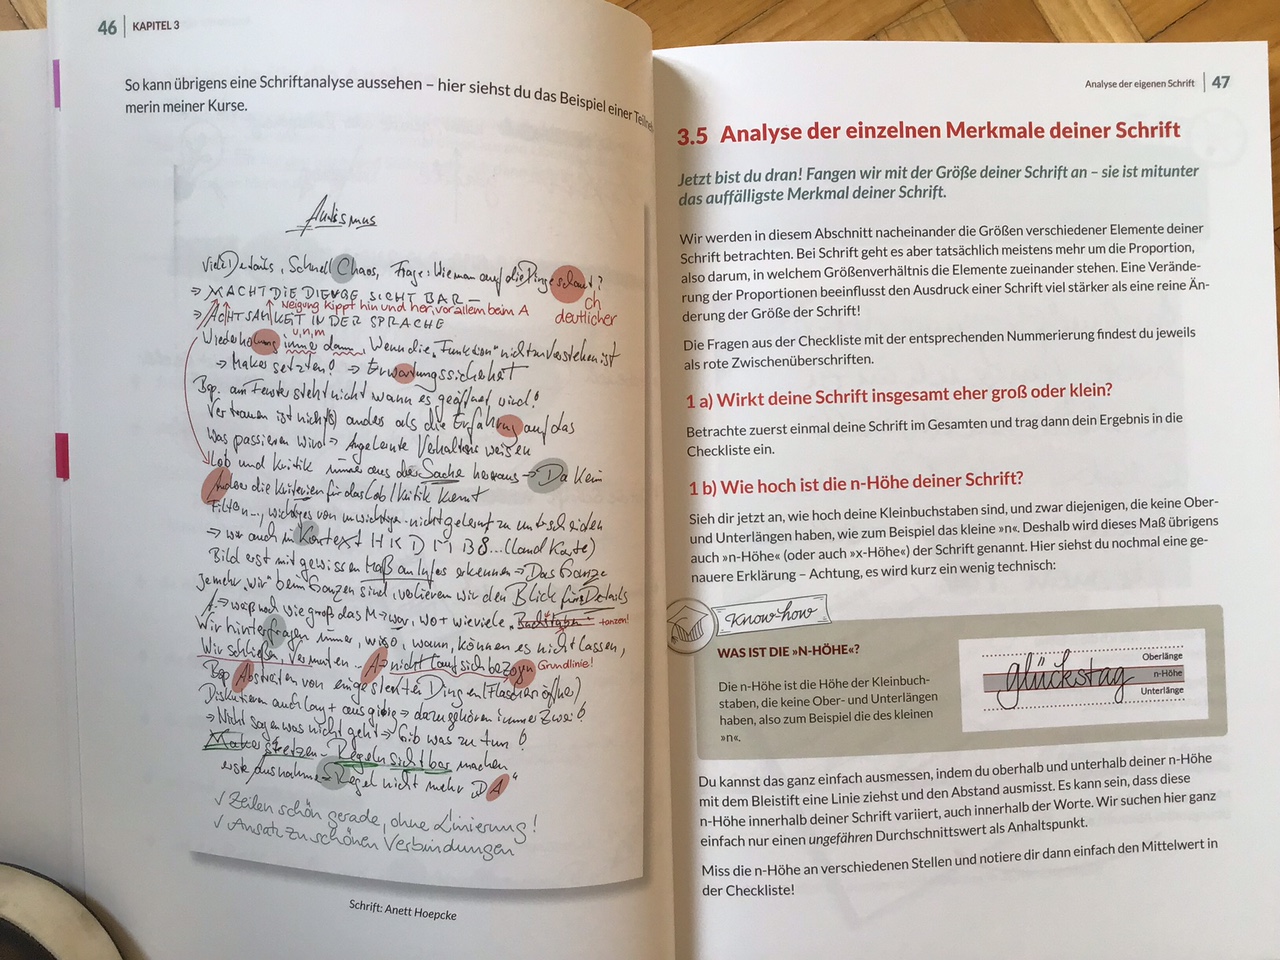 46 | KAPITEL 3
So kann übrigens eine Schriftanalyse aussehen – hier siehst du das Beispiel einer Teilneh
merin meiner Kurse.
Autismus
viele Details, Schnell Chaos, Frage: Wie man auf die Dinge schaut?
→ MACHT DIE DIENGE SICHT BAR –
ch
deutlicher
Neigung kippt hin und her, vor allem beim A
→ ACHTSAMKEIT IN DER SPRACHE
u, n, m
Wiederholung immer dann, Wenn die „Funktion“ nicht zu verstehen ist
→ Maker setzten! → Erwartungssicherheit
Bsp. am Fenster steht nicht wann es geöffnet wird!
Vertrauen ist nicht(s) anders als die Erfahrung auf das
Was passieren wird → Angelernte Verhaltens weisen
Lob und Kritik immer aus der Sache heraus → Da kein
Andere die Kriterien für das Lob/Kritik kennt
Filter..., wichtiges von unwichtige nicht gelernt zu unterscheiden
→ war auch in Kontext H K D M B 8 ... (Land Karte)
Bild erst mit gewissen Maß an Infos erkennen → Das Ganze
je mehr „wir“ beim Ganzen sind, verlieren wir den Blick fürs Details
→ weiß noch wie groß das M → war, wo + wieviele „Buchstaben“ tanzen!
Wir hinterfragen immer, wieso, wann, können es nicht lassen,
Wir schließen, Vermuten ... → nicht (auf sich bezogen Grundlinie!
Bsp Abstreiten von eingesteckten Dingen (Flaschenöffner)
Diskutieren auch laut + ausgibig → dazu gehören immer Zwei!
→ Nicht sagen was nicht geht → Gib was zu tun!
Maker setzen – Regeln sichtbar machen
erste Ausnahme → Regel nicht mehr „DA“
✓ Zeilen schön gerade, ohne Linierung!
✓ Ansatz zu schönen Verbindungen
Schrift: Anett Hoepcke
Analyse der eigenen Schrift | 47
3.5 Analyse der einzelnen Merkmale deiner Schrift
Jetzt bist du dran! Fangen wir mit der Größe deiner Schrift an – sie ist mitunter
das auffälligste Merkmal deiner Schrift.
Wir werden in diesem Abschnitt nacheinander die Größen verschiedener Elemente deiner
Schrift betrachten. Bei Schrift geht es aber tatsächlich meistens mehr um die Proportion,
also darum, in welchem Größenverhältnis die Elemente zueinander stehen. Eine Verände-
rung der Proportionen beeinflusst den Ausdruck einer Schrift viel stärker als eine reine Än-
derung der Größe der Schrift!
Die Fragen aus der Checkliste mit der entsprechenden Nummerierung findest du jeweils
als rote Zwischenüberschriften.
1 a) Wirkt deine Schrift insgesamt eher groß oder klein?
Betrachte zuerst einmal deine Schrift im Gesamten und trag dann dein Ergebnis in die
Checkliste ein.
1 b) Wie hoch ist die n-Höhe deiner Schrift?
Sieh dir jetzt an, wie hoch deine Kleinbuchstaben sind, und zwar diejenigen, die keine Ober-
und Unterlängen haben, wie zum Beispiel das kleine »n«. Deshalb wird dieses Maß übrigens
auch »n-Höhe« (oder auch »x-Höhe«) der Schrift genannt. Hier siehst du nochmal eine ge-
nauere Erklärung – Achtung, es wird kurz ein wenig technisch:
Know-how
WAS IST DIE »N-HÖHE«?
Die n-Höhe ist die Höhe der Kleinbuch-
staben, die keine Ober- und Unterlängen
haben, also zum Beispiel die des kleinen
»n«.
glückstag
Oberlänge
n-Höhe
Unterlänge
Du kannst das ganz einfach ausmessen, indem du oberhalb und unterhalb deiner n-Höhe
mit dem Bleistift eine Linie ziehst und den Abstand ausmisst. Es kann sein, dass diese
n-Höhe innerhalb deiner Schrift variiert, auch innerhalb der Worte. Wir suchen hier ganz
einfach nur einen ungefähren Durchschnittswert als Anhaltspunkt.
Miss die n-Höhe an verschiedenen Stellen und notiere dir dann einfach den Mittelwert in
der Checkliste!